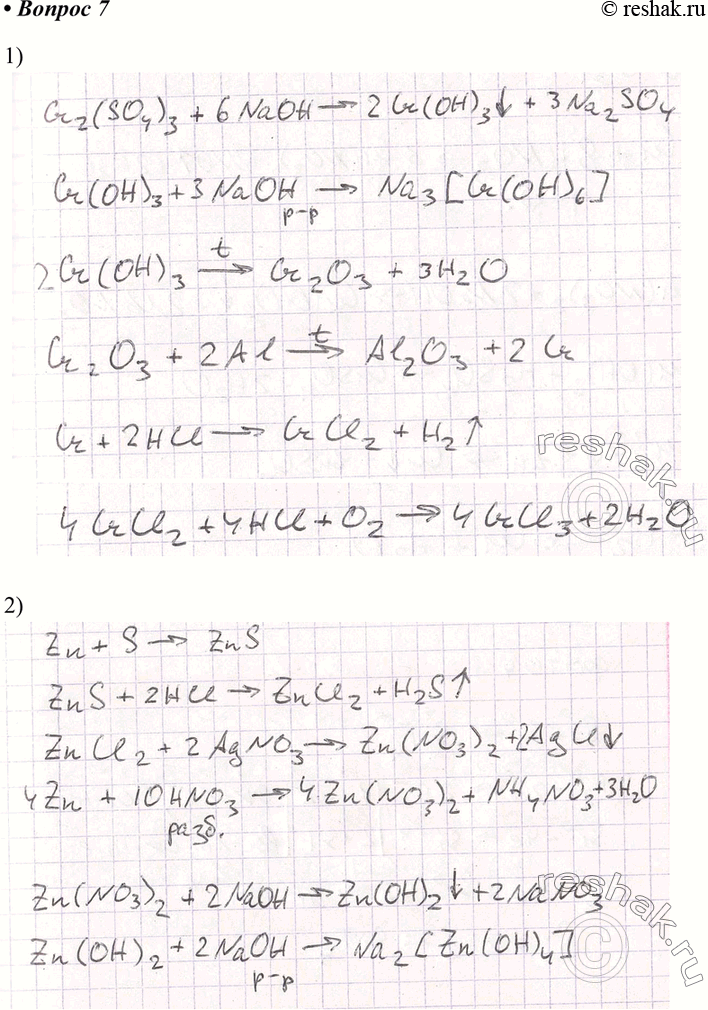 • Вопрос 7
© reshak.ru
1)
Cr₂(SO₄)₃ + 6NaOH → 2Cr(OH)₃↓ + 3Na₂SO₄
Cr(OH)₃ + 3NaOH → Na₃[Cr(OH)₆]
р-р
2Cr(OH)₃ t→ Cr₂O₃ + 3H₂O
Cr₂O₃ + 2Al t→ Al₂O₃ + 2Cr
Cr + 2HCl → CrCl₂ + H₂↑
4CrCl₂ + 4HCl + O₂ → 4CrCl₃ + 2H₂O
reshak.ru
©
2)
Zn + S → ZnS
ZnS + 2HCl → ZnCl₂ + H₂S↑
ZnCl₂ + 2AgNO₃ → Zn(NO₃)₂ + 2AgCl↓
4Zn + 10HNO₃ → 4Zn(NO₃)₂ + NH₄NO₃ + 3H₂O
разб.
Zn(NO₃)₂ + 2NaOH → Zn(OH)₂↓ + 2NaNO₃
Zn(OH)₂ + 2NaOH → Na₂[Zn(OH)₄]
р-р
reshak.ru
©